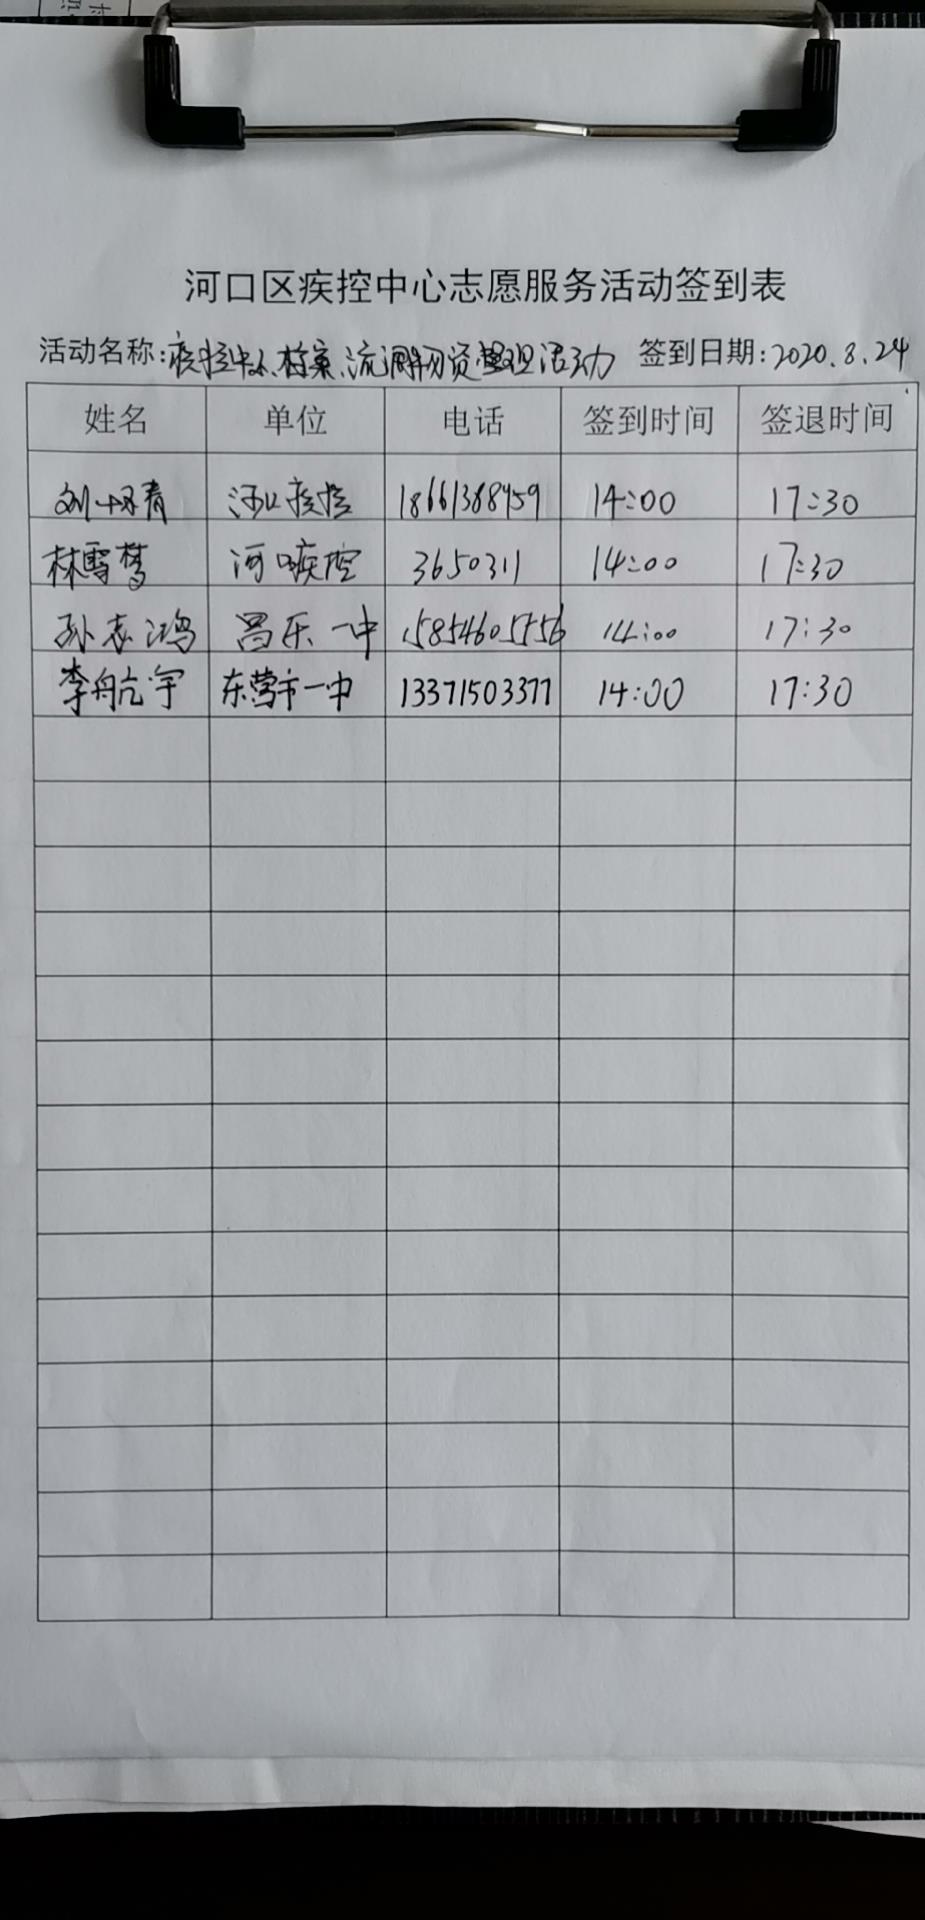 河口区疾控中心志愿服务活动签到表
活动名称:疾控中心档案、流调物资整理活动 签到日期:2020.8.24
姓名 单位 电话 签到时间 签退时间
刘丹青 河口疾控 18661388959 14:00 17:30
林雪梦 河口疾控 3650311 14:00 17:30
孙志鸿 昌乐一中 15854605556 14:00 17:30
李航宇 东营市一中 13371503377 14:00 17:30